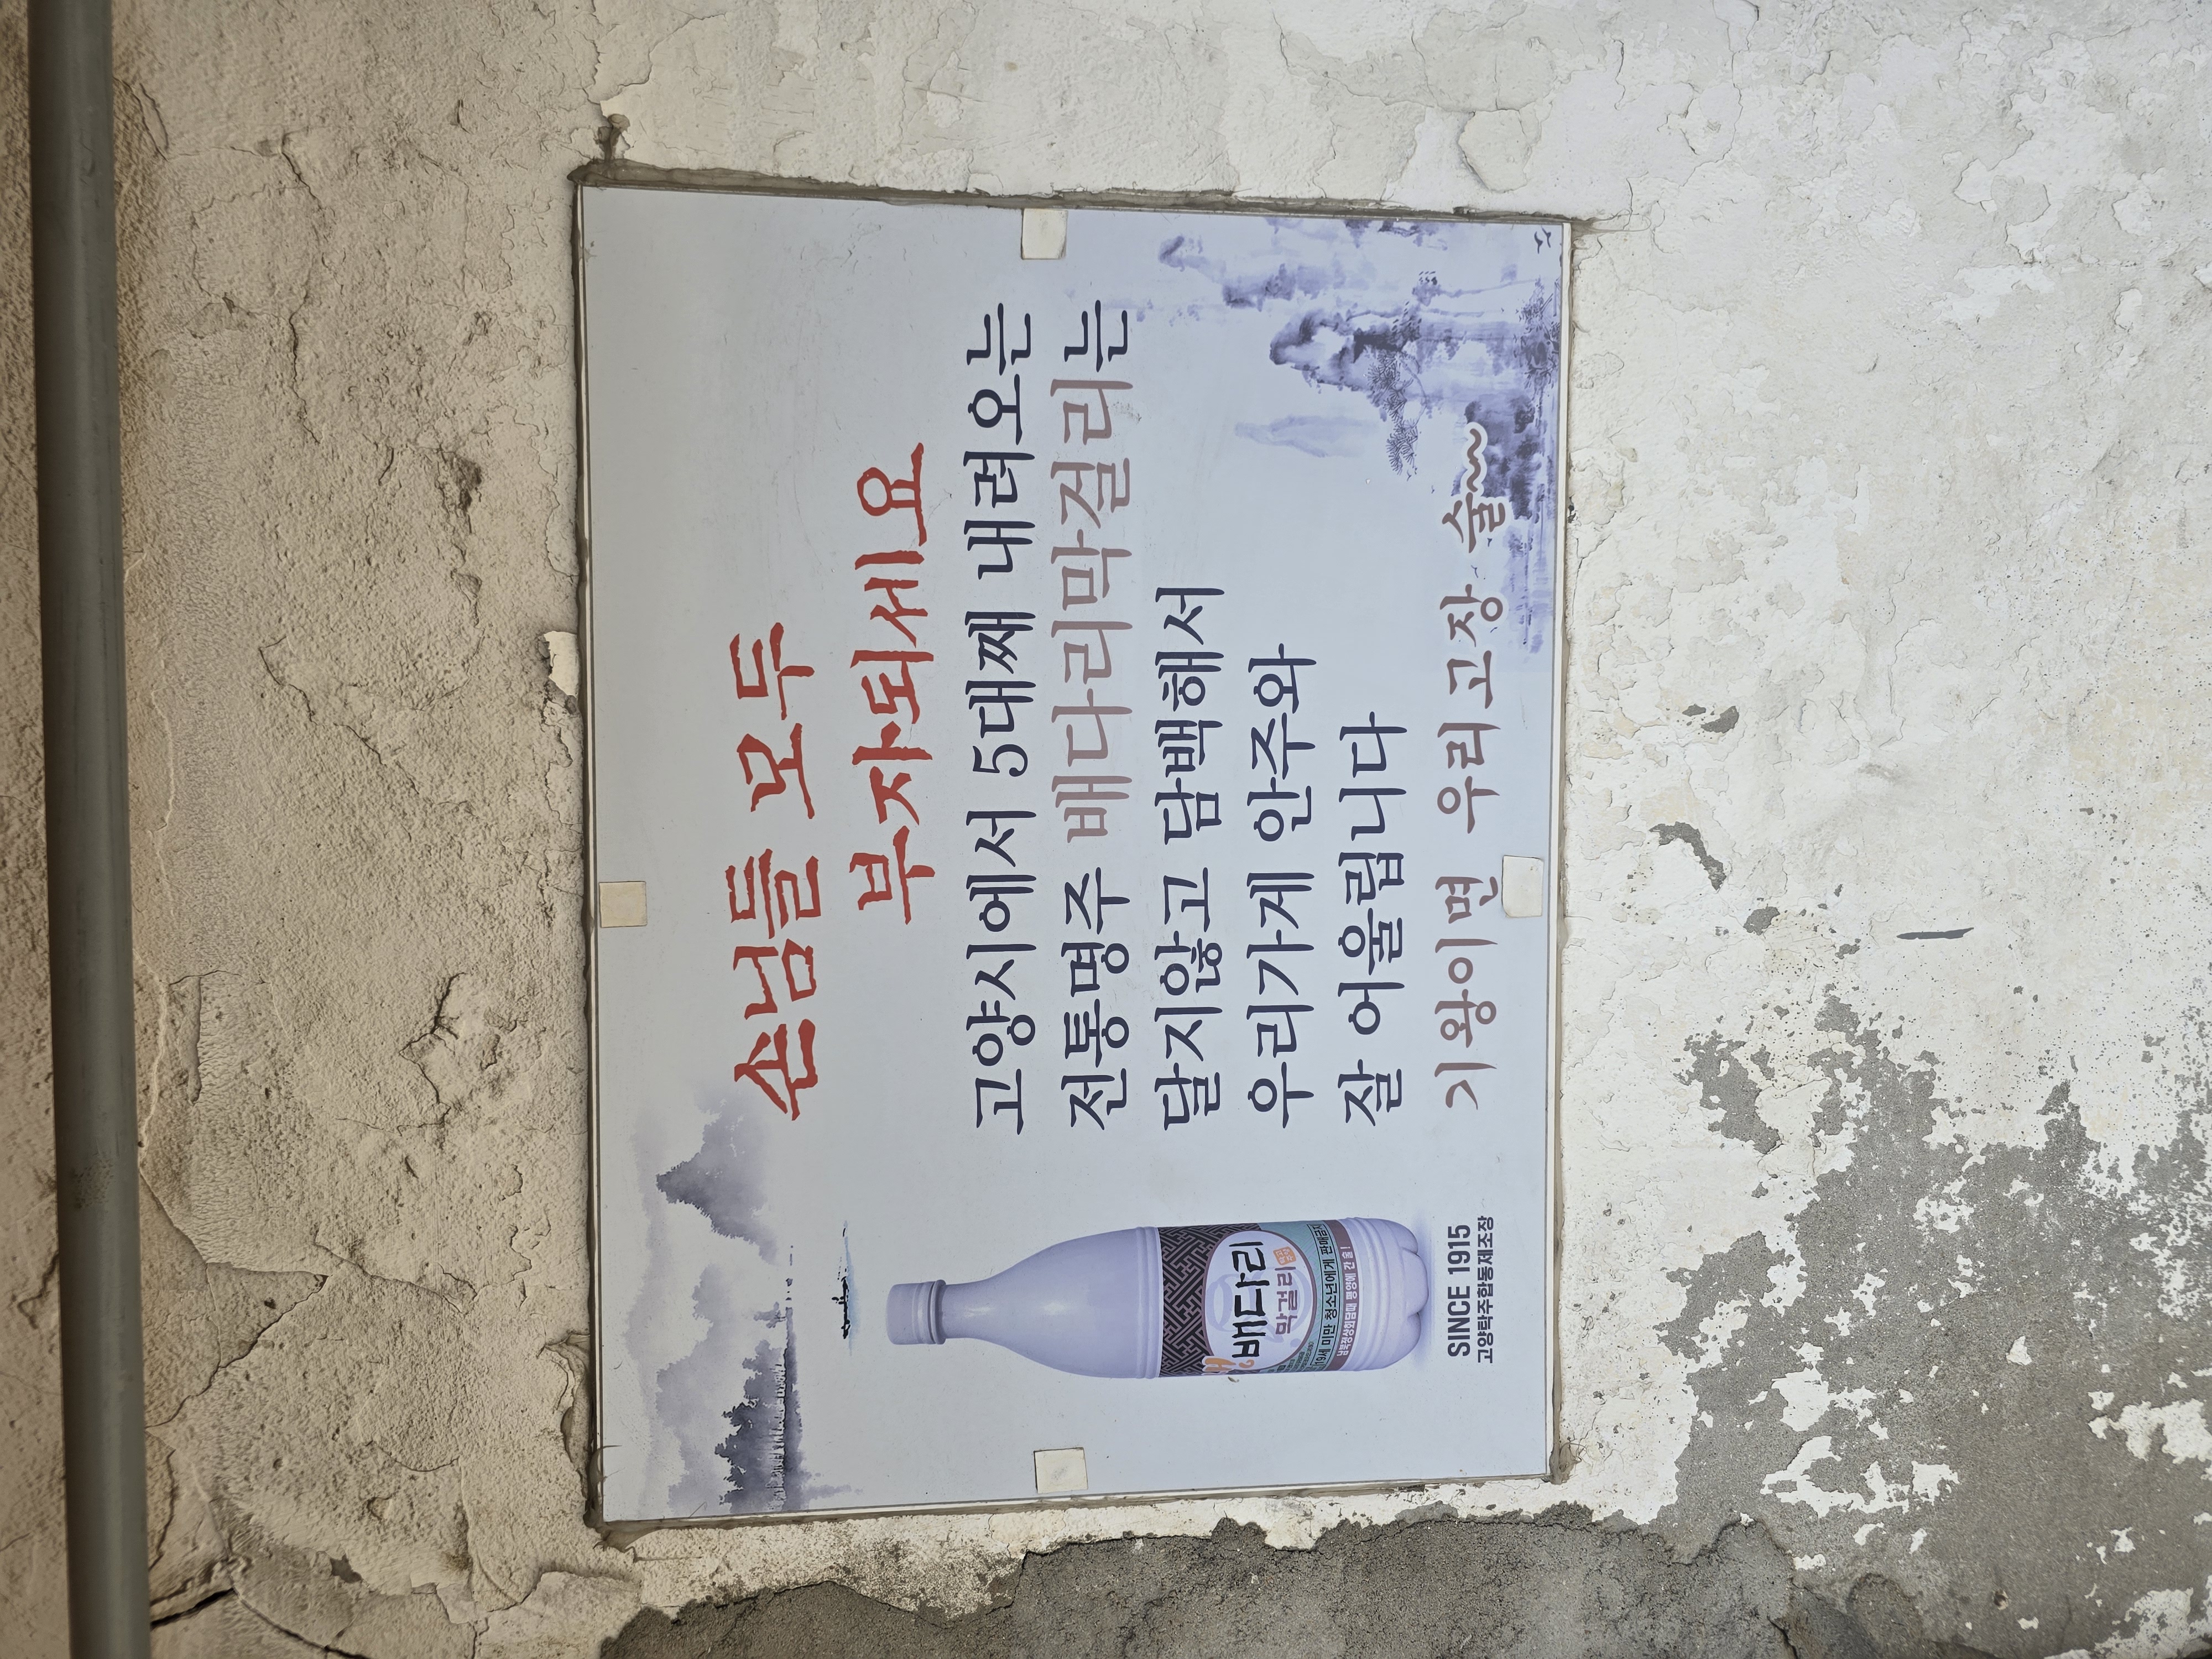 손님들 모두
부자되세요
고양시에서 5대째 내려오는
전통명주 배다리막걸리는
달지않고 담백해서
우리가게 안주와
잘 어울립니다
기왕이면 우리고장 술~~
생
배다리
막걸리
19세 미만 청소년에게 판매금지
남북정상회담때 평양에 간 술!
SINCE 1915
고양탁주합동제조장